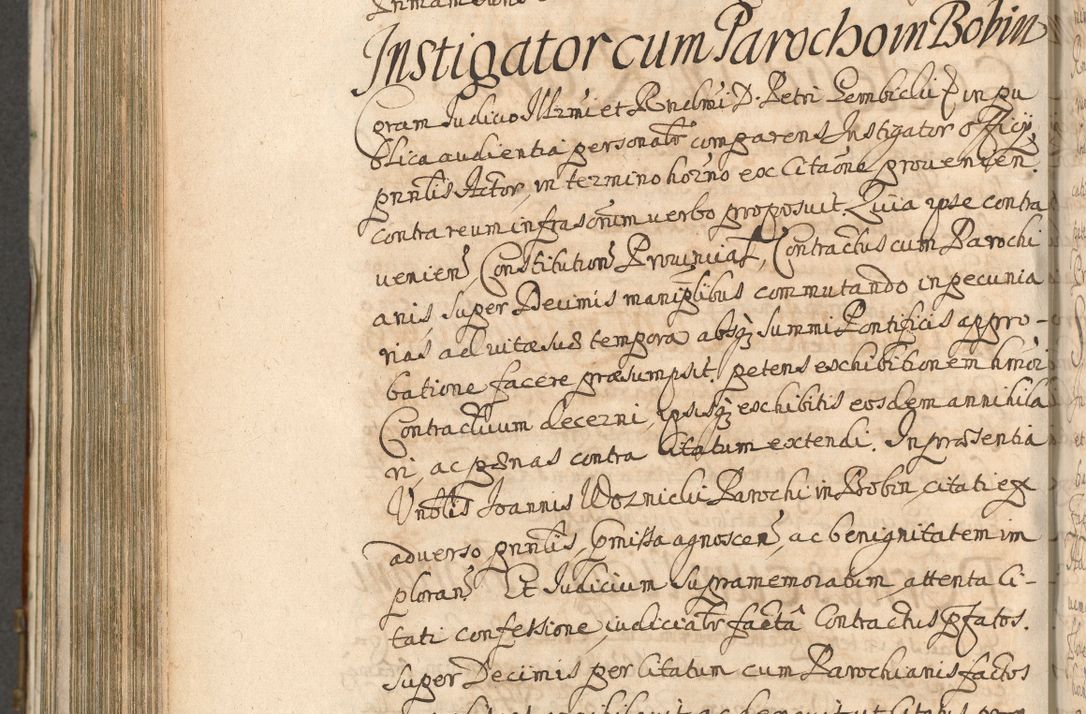 Instigator cum Parocho in Bobin
Coram Judicio Illrmi et Rndmi D. Petri Gembicki Eppi in pu
blica audientia personalr comparens Instigator Officij
pnntis Actor, in termino horno ex Citaone provenien
contra reum infrascrum verbo proposuit. Quia ipse contra
venien Constitution Provincial, Contractus cum Parochi
anis, super Decimis maniplibus commutando in pecunia
rias ad vitæ suæ tempora absq summi Pontificis appro-
batione facere præsumpsit, petens exhibitionem hmoi
Contractuum decerni, ipsisq exhibitis eosdem annihila
ri, ac pænas contra Citatum extendi. In præsentia
Vnblis Joannis Woznicki Parochi in Bobin, citati ex
adverso pnntis, pmissa agnoscen, ac benignitatem im
ploran. Et Judicium supramemoratum, attenta Ci-
tati confessione, iudicialr facta Contractus pfatos.
super Decimis per Citatum cum Parochianis factos